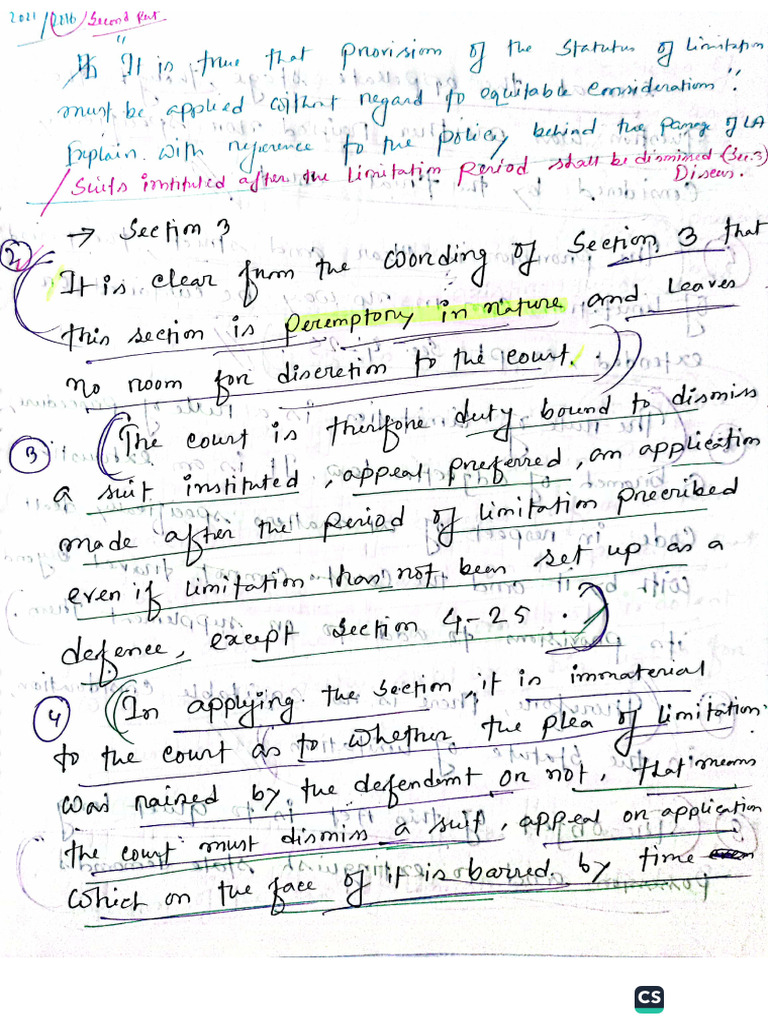 2021/2216/Second Part
"It is true that provision of the Statutes of Limitation
must be applied without regard to equitable considerations".
Explain with reference to the policy behind the passage of LA
/Suits instituted after the limitation period shall be dismissed (Sec.3)
Discuss.
→ Section 3
2 It is clear from the wording of Section 3 that
this section is peremptory in nature and leaves
no room for discretion to the court.
3 (The court is therefore duty bound to dismiss
a suit instituted, appeal preferred, an application
made after the period of limitation precribed
even if limitation has not been set up as a
defence, except section 4-25.)
4 (In applying the section, it is immaterial
to the court as to whether the plea of limitation
was raised by the defendant or not, that means
"the court must dismiss a suit, appeal or application
which on the face of it is barred by time
CS